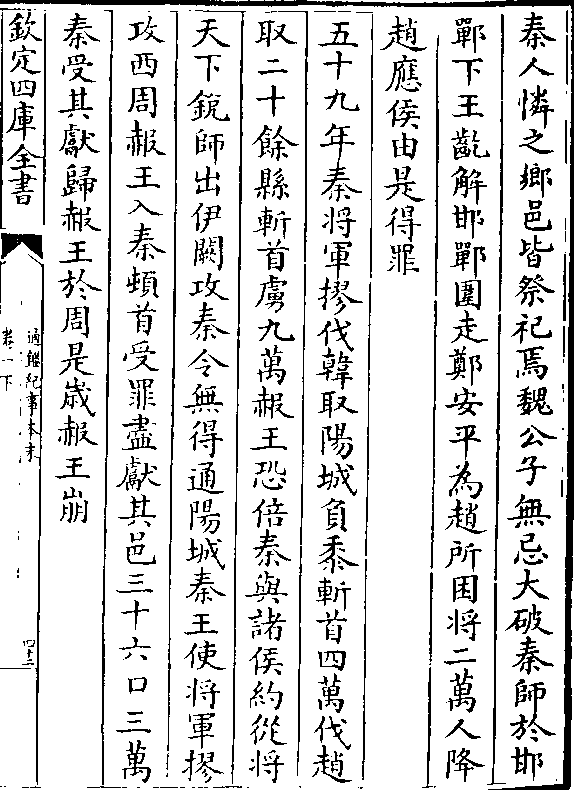 秦人憐之鄉邑皆祭祀焉魏公子無忌大破秦師於邯
鄲下王齕解邯鄲圍走鄭安平為趙所困将二萬人降
趙應侯由是得罪
五十九年秦将軍摎伐韓取陽城負黍斬首四萬伐趙
取二十餘縣斬首虜九萬赧王恐倍秦與諸侯約從将
天下銳師出伊闕攻秦令無得通陽城秦王使将軍摎
攻西周赧王入秦頓首受罪盡獻其邑三十六口三萬
秦受其獻歸赧王於周是歲赧王崩
欽定四庫全書
通鑑紀事本末
卷一下
四十二